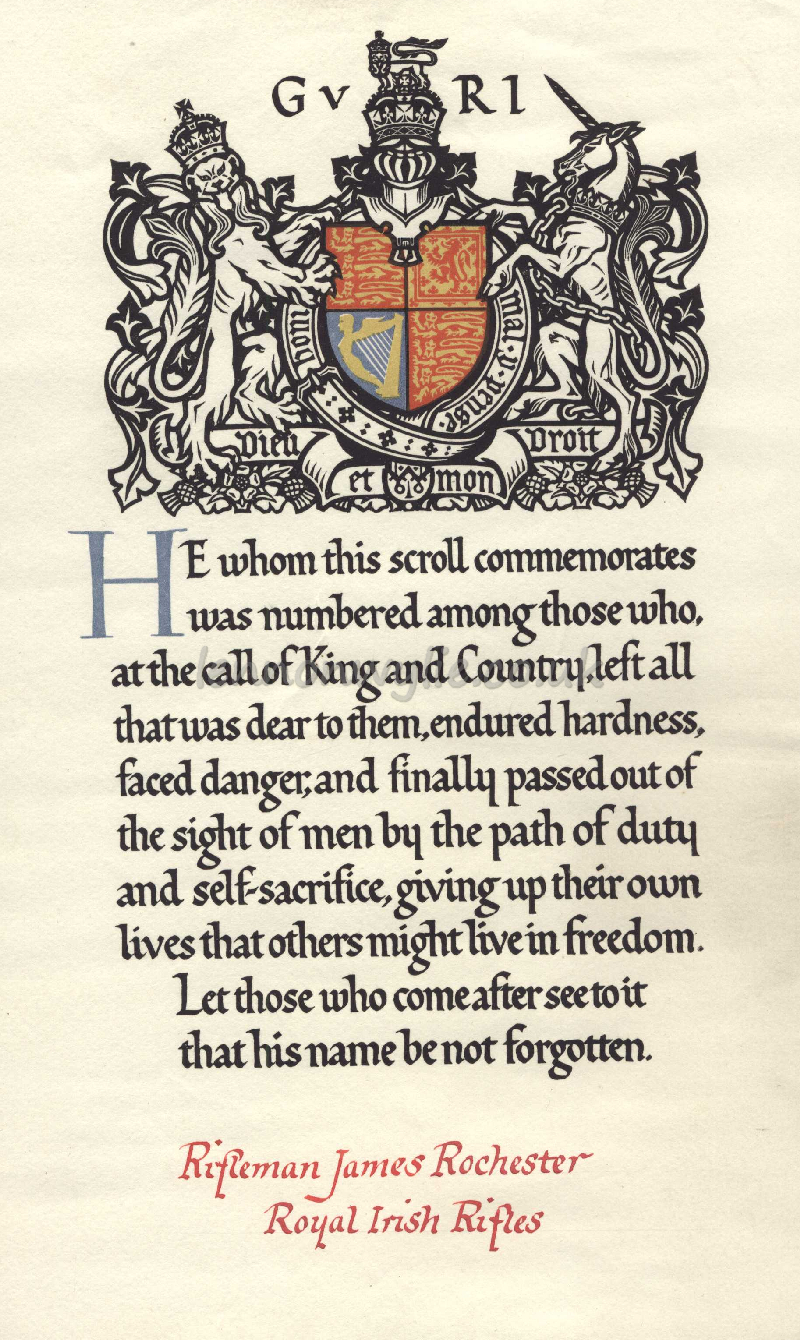 G V R I
hom mal·y·pense·
Dieu Droit
et mon
HE whom this scroll commemorates
was numbered among those who,
at the call of King and Country, left all
that was dear to them, endured hardness,
faced danger, and finally passed out of
the sight of men by the path of duty
and self-sacrifice, giving up their own
lives that others might live in freedom.
Let those who come after see to it
that his name be not forgotten.
Rifleman James Rochester
Royal Irish Rifles